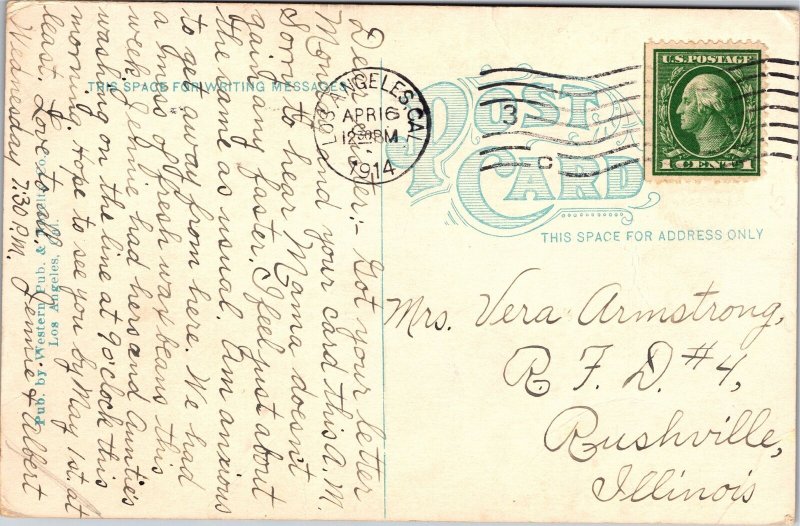 Dear Sister:- Got your letter
Monday and your card this A.M.
Sorry to hear Mama doesn't
gain any faster. I feel just about
the same as usual. Am anxious
to get away from here. We had
a mess of fresh wax beans this
week. Jennie had hers and Auntie's
washing on the line at 9 o'clock this
morning. Hope to see you by May 1st. at
least. Love to all. Jennie & Albert
Wednesday 7:30 P.M.
THIS SPACE FOR WRITING MESSAGES
Pub. by Western Pub. & Novelty Co.
Los Angeles, Cal.
LOS ANGELES, CAL.
APR 16
12 30 PM
1914
3
C
POST
CARD
U.S. POSTAGE
1 CENT 1
THIS SPACE FOR ADDRESS ONLY
Mrs. Vera Armstrong,
R. F. D. #4,
Rushville,
Illinois